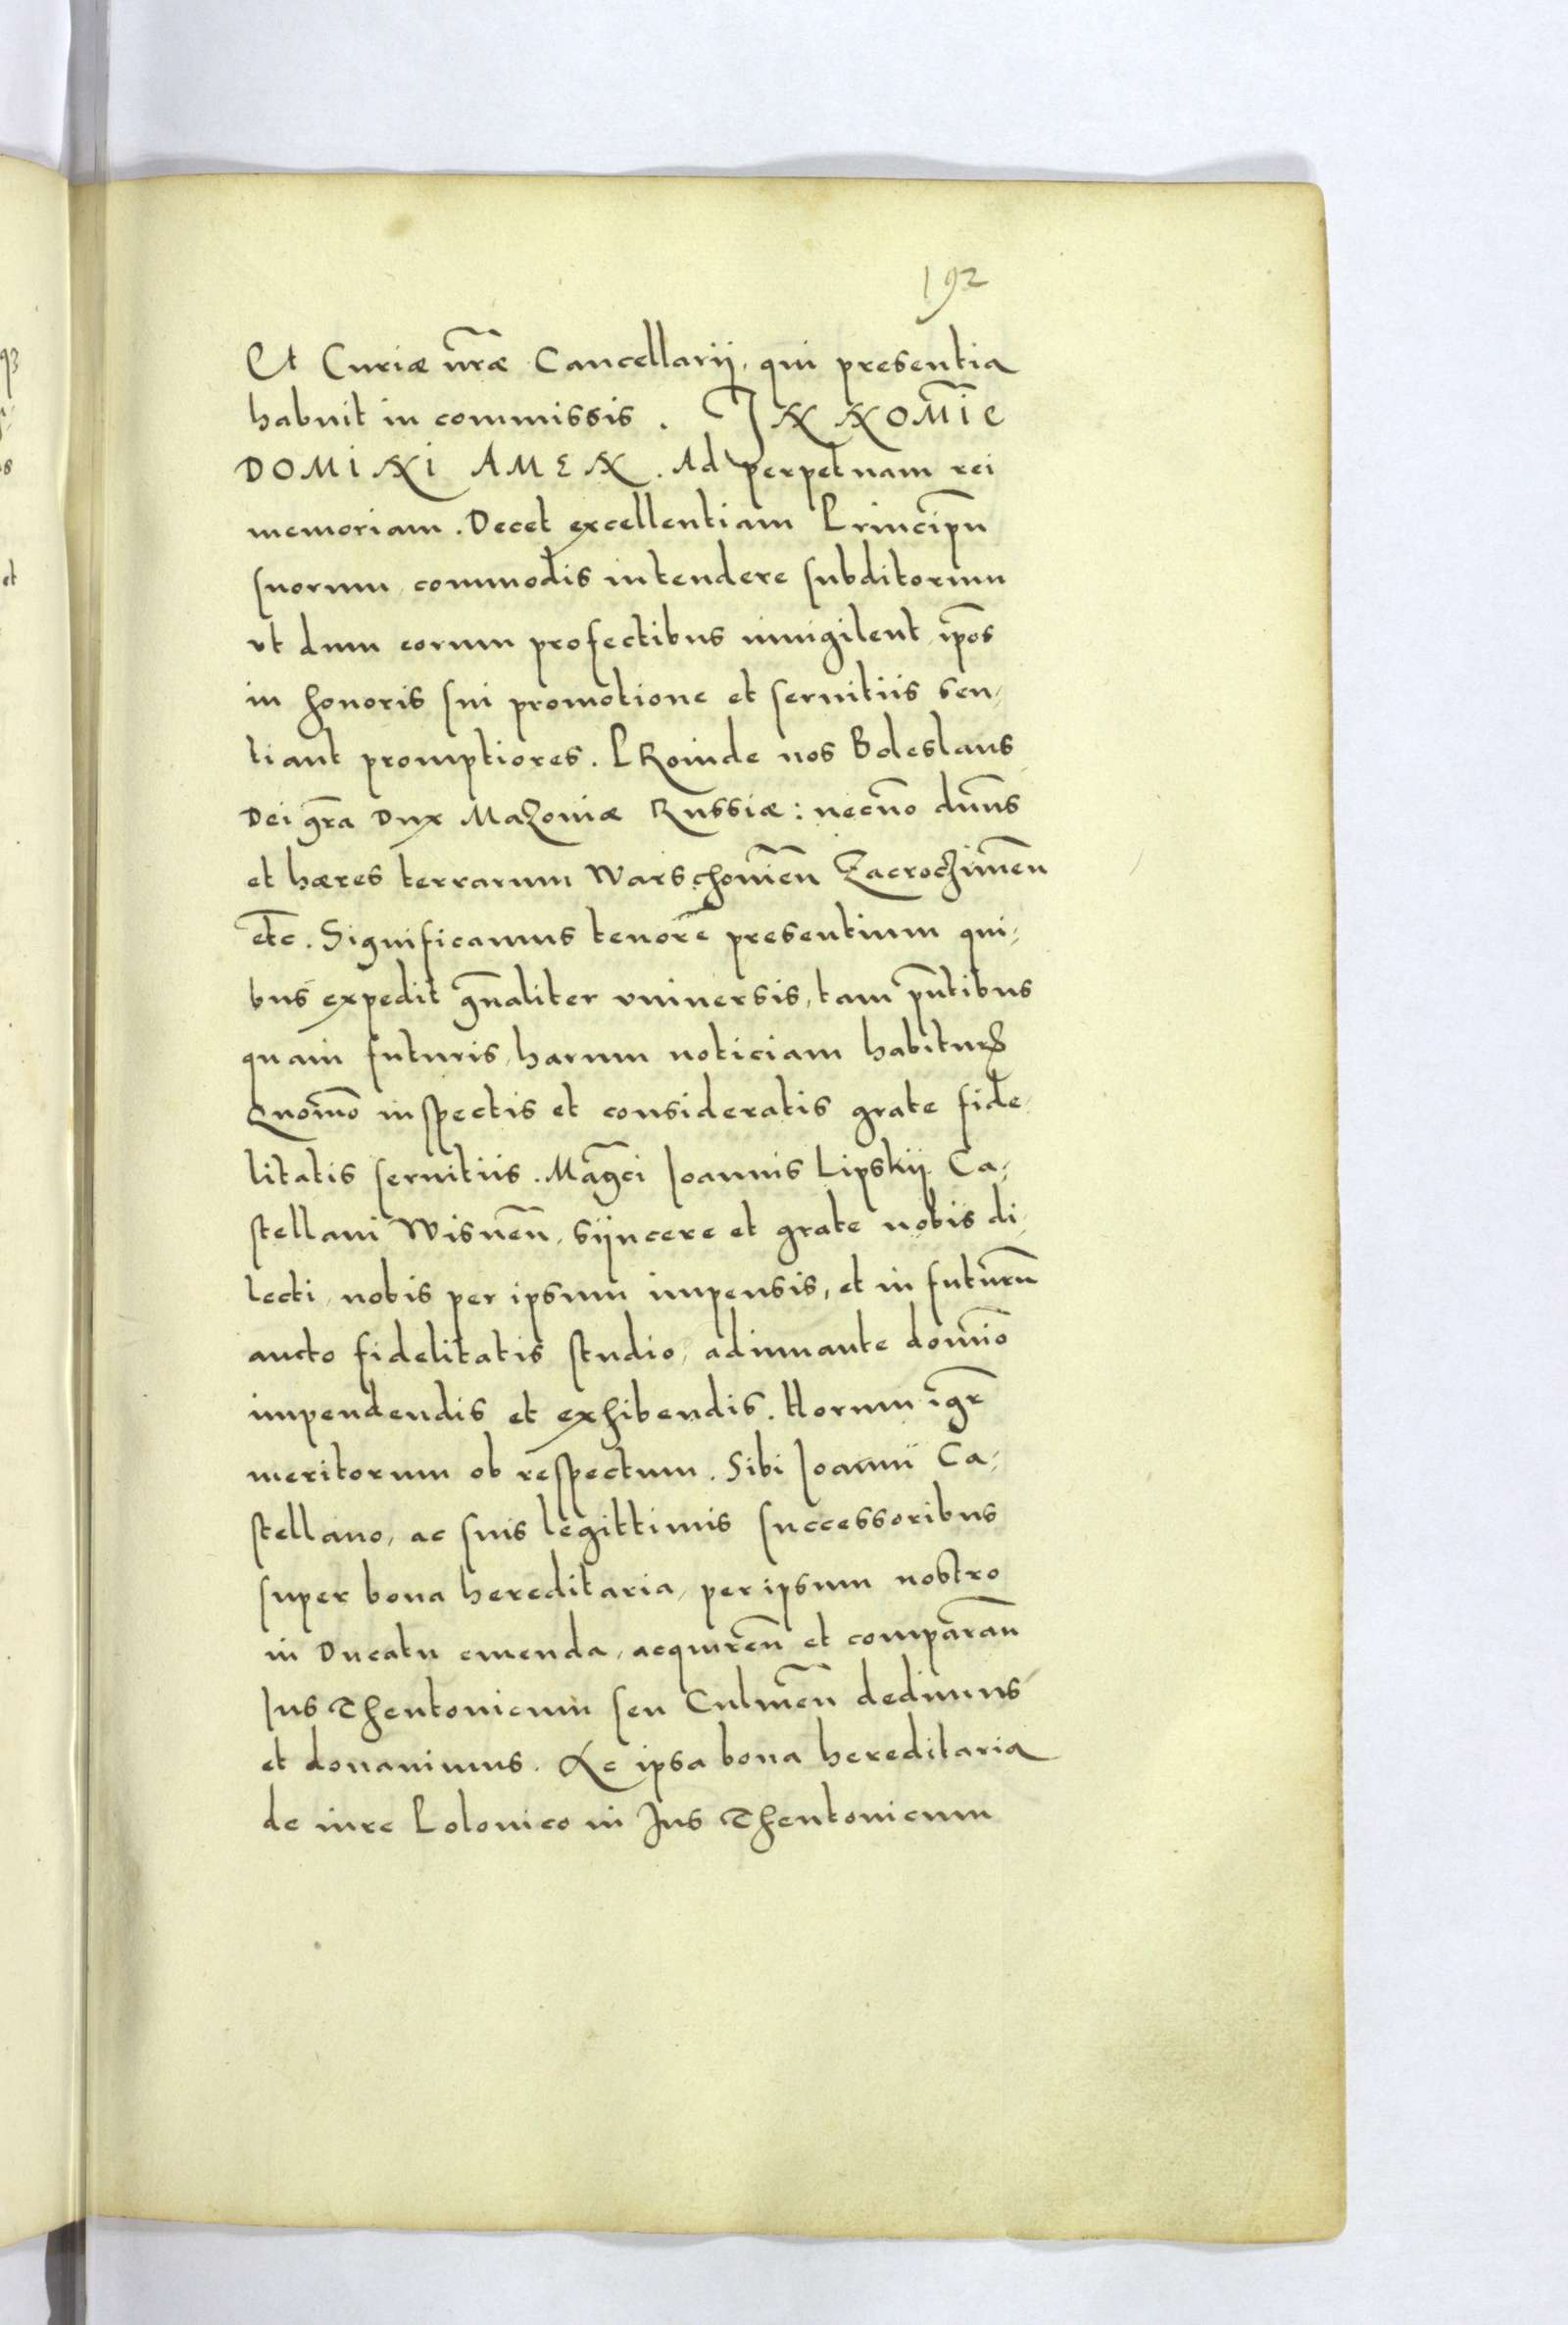 192
Et Curiæ nr̃æ Cancellarij, qui presentia
habuit in commissis. IN NOMĨE
DOMINI AMEN. Ad perpetuam rei
memoriam. Decet excellentiam Principũ
suorum, commodis intendere subditorum
vt dum eorum profectibus inuigilent, ip̃os
in honoris sui promotione et seruitiis sen,
tiant promptiores. PRoinde nos Boleslaus
Dei gr̃a Dux Mazouiæ Russiæ: necño dñus
et hæres terrarum Warschouieñ Zacroczimeñ
etc̃. Significamus tenorẽ presentium qui,
bus expedit gñaliter vniuersis, tam pñtibus
quam futuris, harum noticiam habiturꝭ
Quomõ inspectis et consideratis grate fide,
litatis seruitiis. Mag̃ci Joannis Lipskij Ca,
stellani Wisneñ, sijncere et grate nobis di,
lecti, nobis per ipsum impensis, et in futurũ
aucto fidelitatis studio, adiuuante domĩo
impendendis et exhibendis. Horum igr̃
meritorum ob respectum. Sibi Joanni Ca,
stellano, ac suis legittimis successoribus
super bona hereditaria, per ipsum nostro
in Ducatu emenda, acquireñ et comparañ
Jus Theutonicum seu Culmeñ dedimus
et donauimus. Ac ipsa bona hereditaria
de iure Polonico in Jus Theutonicum